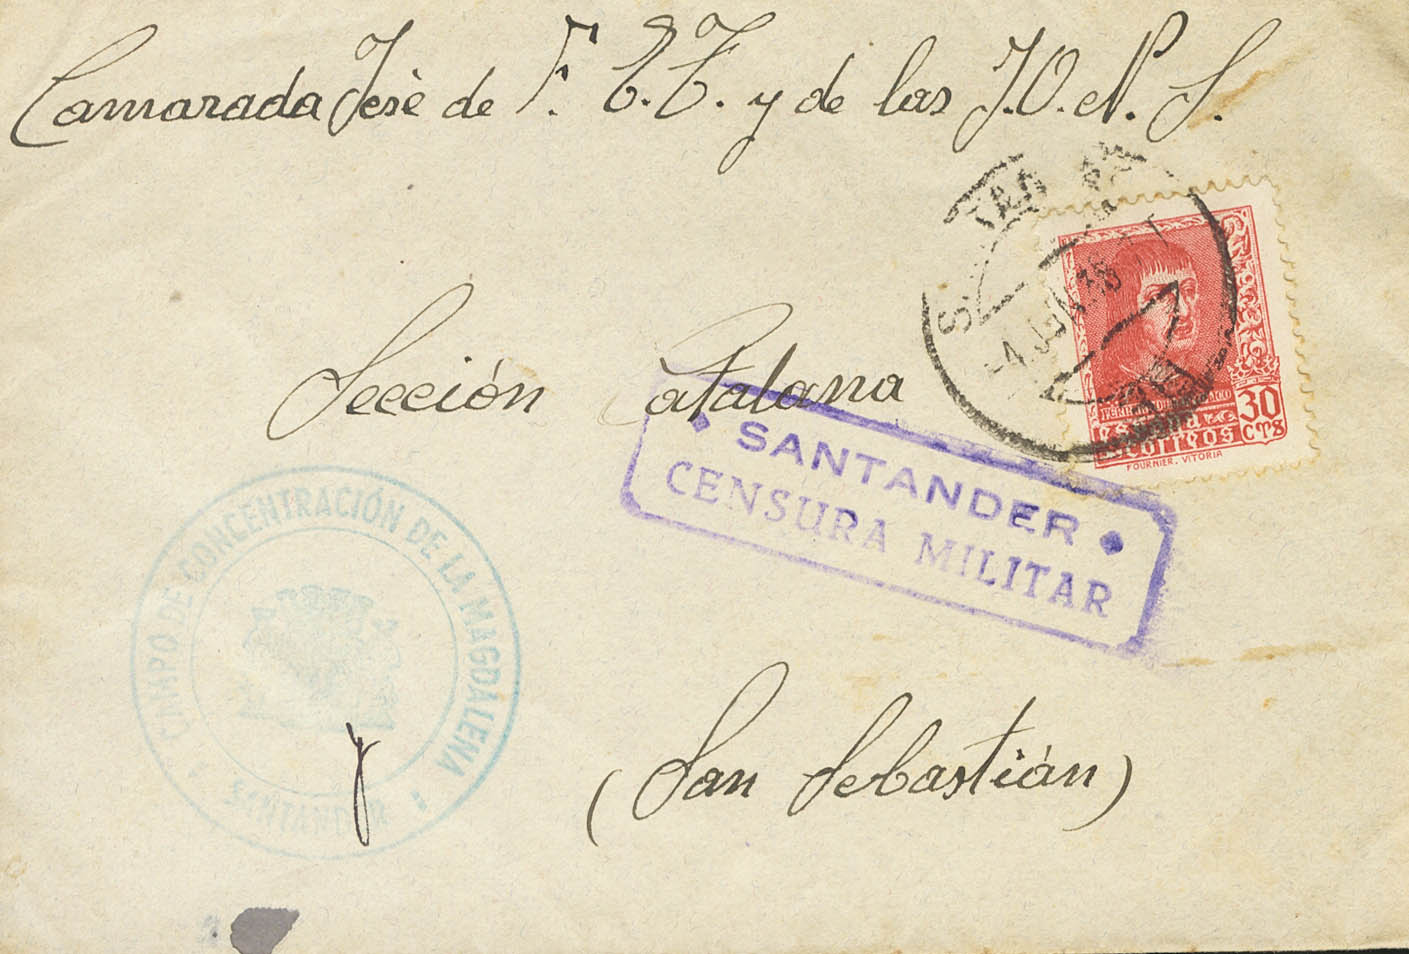 Camarada Jesè de F. E. T. y de las J. O. N. S.
Sección Catalana
(San Sebastián)
SANTANDER
CENSURA MILITAR
CAMPO DE CONCENTRACIÓN DE LA MAGDALENA
SANTANDER
30
CTS
ESPAÑA
CORREOS
FOURNIER. VITORIA